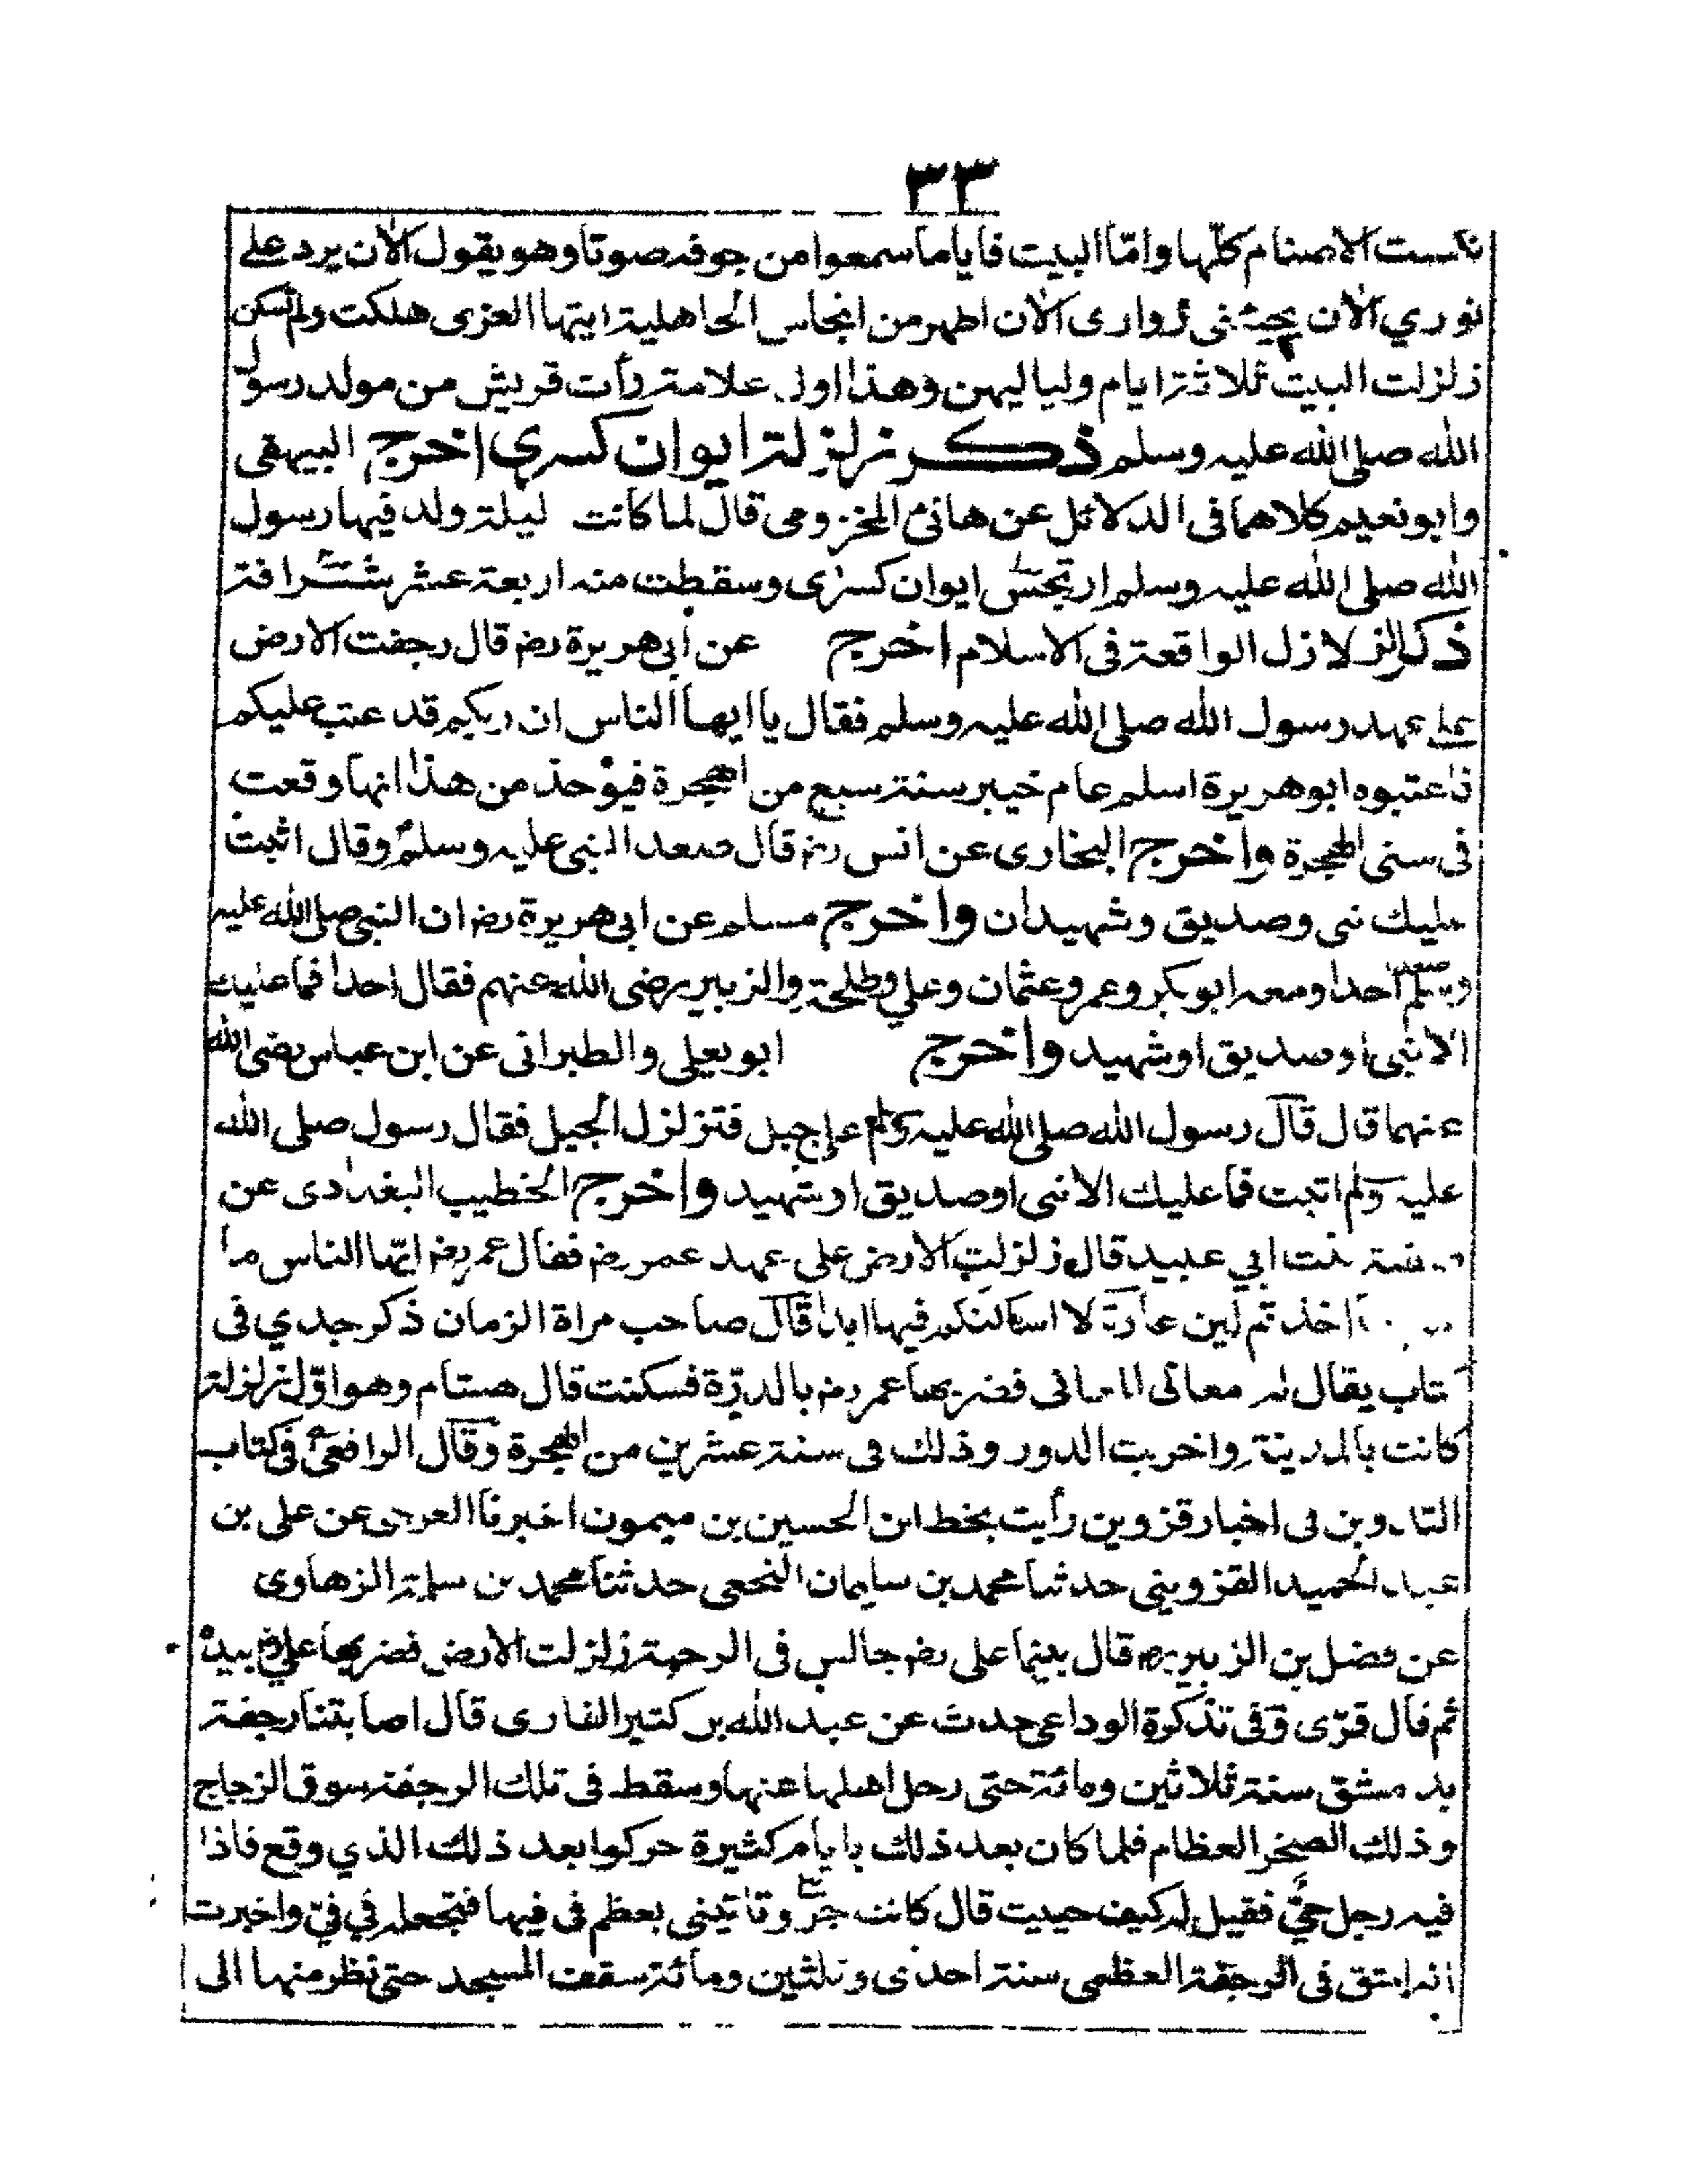 ٣٣
نكست الاصنام كلّها وامّا البيت فاياما سمعوا من جوفه صوتا وهو يقول الآن يرد على
نوري الآن يجيئنى زوارى الآن اطهر من انجاس الجاهلية ايتها العزى هلكت ولم تسكن
زلزلت البيت ثلاثة ايام ولياليهن وهذا اول علامة رأت قريش من مولد رسول
الله صلى الله عليه وسلم ذكر زلزلة ايوان كسرى اخرج البيهقى
وابو نعيم كلاهما فى الدلائل عن هانئ المخزومى قال لما كانت ليلة ولد فيها رسول
الله صلى الله عليه وسلم ارتجس ايوان كسرى وسقطت منه اربعة عشر شرافة
ذكر الزلازل الواقعة فى الاسلام اخرج عن أبى هريرة رضـ قال رجفت الارض
على عهد رسول الله صلى الله عليه وسلم فقال يا ايها الناس ان ربكم قد عتب عليكم
فاعتبوه ابو هريرة اسلم عام خيبر سنة سبع من الهجرة فيؤخذ من هذا انها وقعت
فى سنى الهجرة واخرج البخارى عن انس رضـ قال صعد النبى عليه وسلم وقال اثبت
عليك نبى وصديق وشهيدان واخرج مسلم عن ابى هريرة رضـ ان النبى صلى الله عليه
وسلم صعد احدا ومعه ابو بكر وعمر وعثمان وعلي وطلحة والزبير رضى الله عنهم فقال احدا فما عليك
الا نبى او صديق او شهيد واخرج ابو يعلى والطبرانى عن ابن عباس رضى الله
عنهما قال قال رسول الله صلى الله عليه ولم على جبل فتزلزل الجبل فقال رسول صلى الله
عليه ولم اثبت فما عليك الا نبى او صديق او شهيد واخرج الخطيب البغدادى عن
بنت ابي عبيد قال زلزلت الارض على عهد عمر رضـ فقال عمر رضـ ايّها الناس ما
اخذتم لين عادت لا اساكنكم فيها ابدا قال صاحب مراة الزمان ذكر جدي فى
كتاب يقال له معانى المعانى فضربها عمر رضـ بالدرّة فسكنت قال هشام وهو اوّل زلزلة
كانت بالمدينة واخربت الدور وذلك فى سنة عشرين من الهجرة وقال الرافعى فى كتاب
التدوين فى اخبار قزوين رأيت بخط ابن الحسين بن ميمون اخبرنا عن على بن
عبد الحميد القزوينى حدثنا محمد بن سليمان النخعى حدثنا محمد بن سلمة الزهاوى
عن فضل بن الزبير رضـ قال بينما على رضـ جالس فى الرحبة زلزلت الارض فضربها علي رضـ بيده
ثم قال قرّى وفى تذكرة الوداعى حدث عن عبد الله بن كثير القارى قال اصابتنا رجفة
بدمشق سنة ثلاثين ومائة حتى رحل اهلها عنها وسقط فى تلك الرجفة سوق الزجاج
وذلك الصخر العظام فلما كان بعد ذلك بايام كثيرة حركوا بعد ذلك الذي وقع فاذا
فيه رجل حيّ فقيل له كيف حييت قال كانت جرو تاتينى بعظم فى فيها فتجعله في فيّ واخبرت
انه انشق فى الرجفة العظمى سنة احدى وثلثين ومائة سقف المسجد حتى نظر منها الى